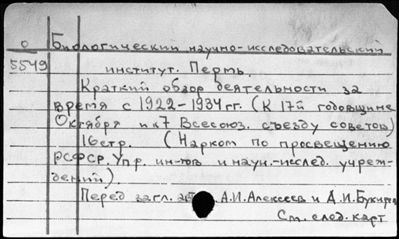 О Биологический научно-исследовательский
5549 институт. Пермь.
Краткий обзор деятельности за
время с 1922-1934 гг. (К 17й годовщине
Октября и к 7 Всесоюз. съезду советов)
16 стр. (Нарком по просвещению
РСФСР. Упр. ин-тов и науч.-исслед. учреж-
дений)
Перед загл. авт. А.И. Алексеев и Д.И. Букирев
См. след. карт